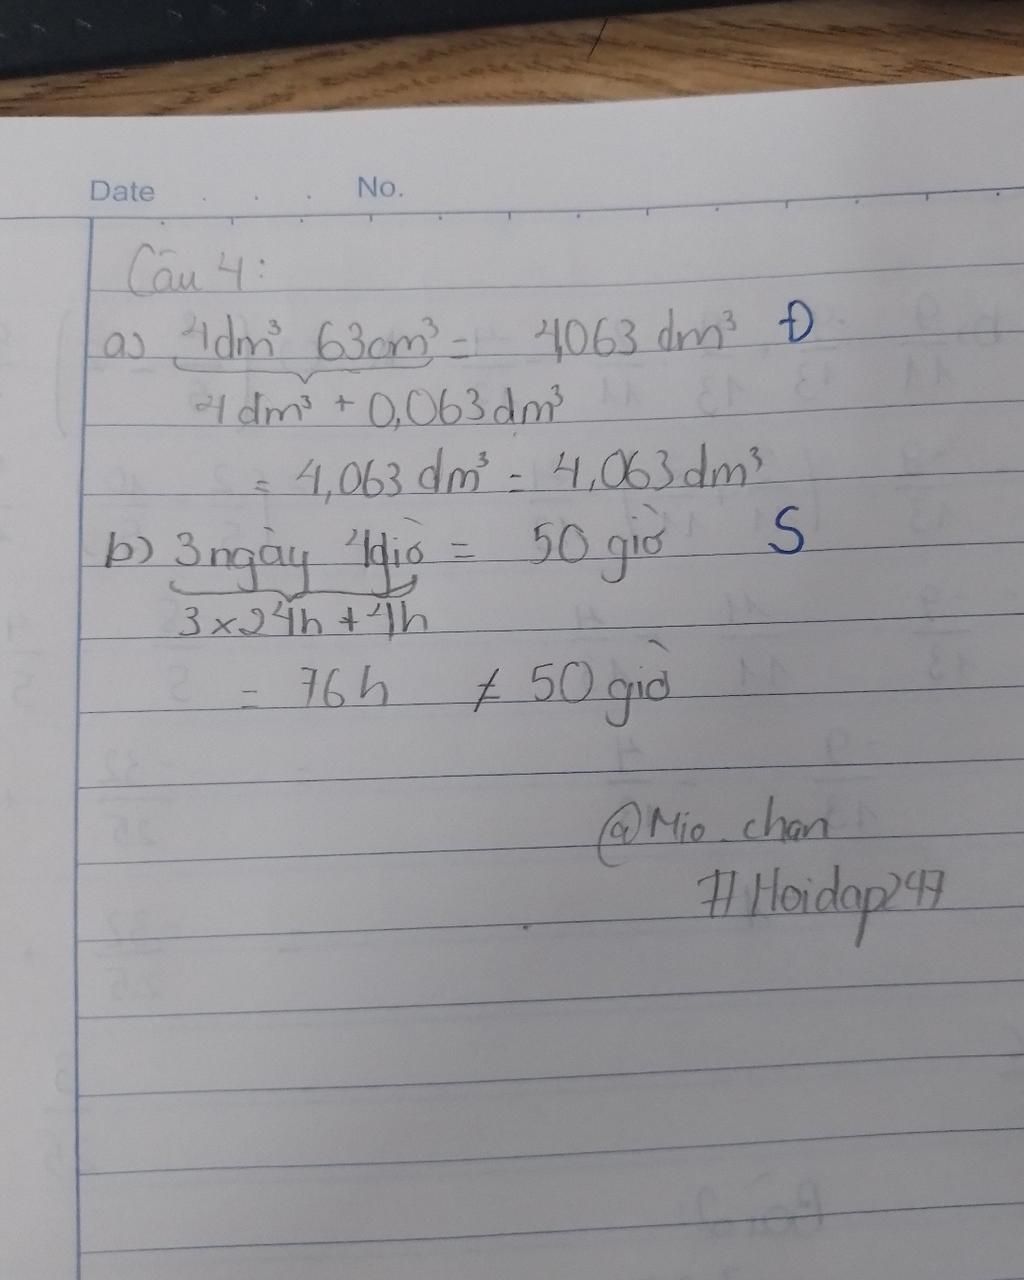 Date . . . No.
Câu 4:
a) 4dm³ 63cm³ = 4,063 dm³ Đ
4 dm³ + 0,063dm³
= 4,063 dm³ = 4,063dm³
b) 3 ngày 4giờ = 50 giờ S
3 x 24h + 4h
= 76h ≠ 50 giờ
@Mio_chan
#Hoidap247